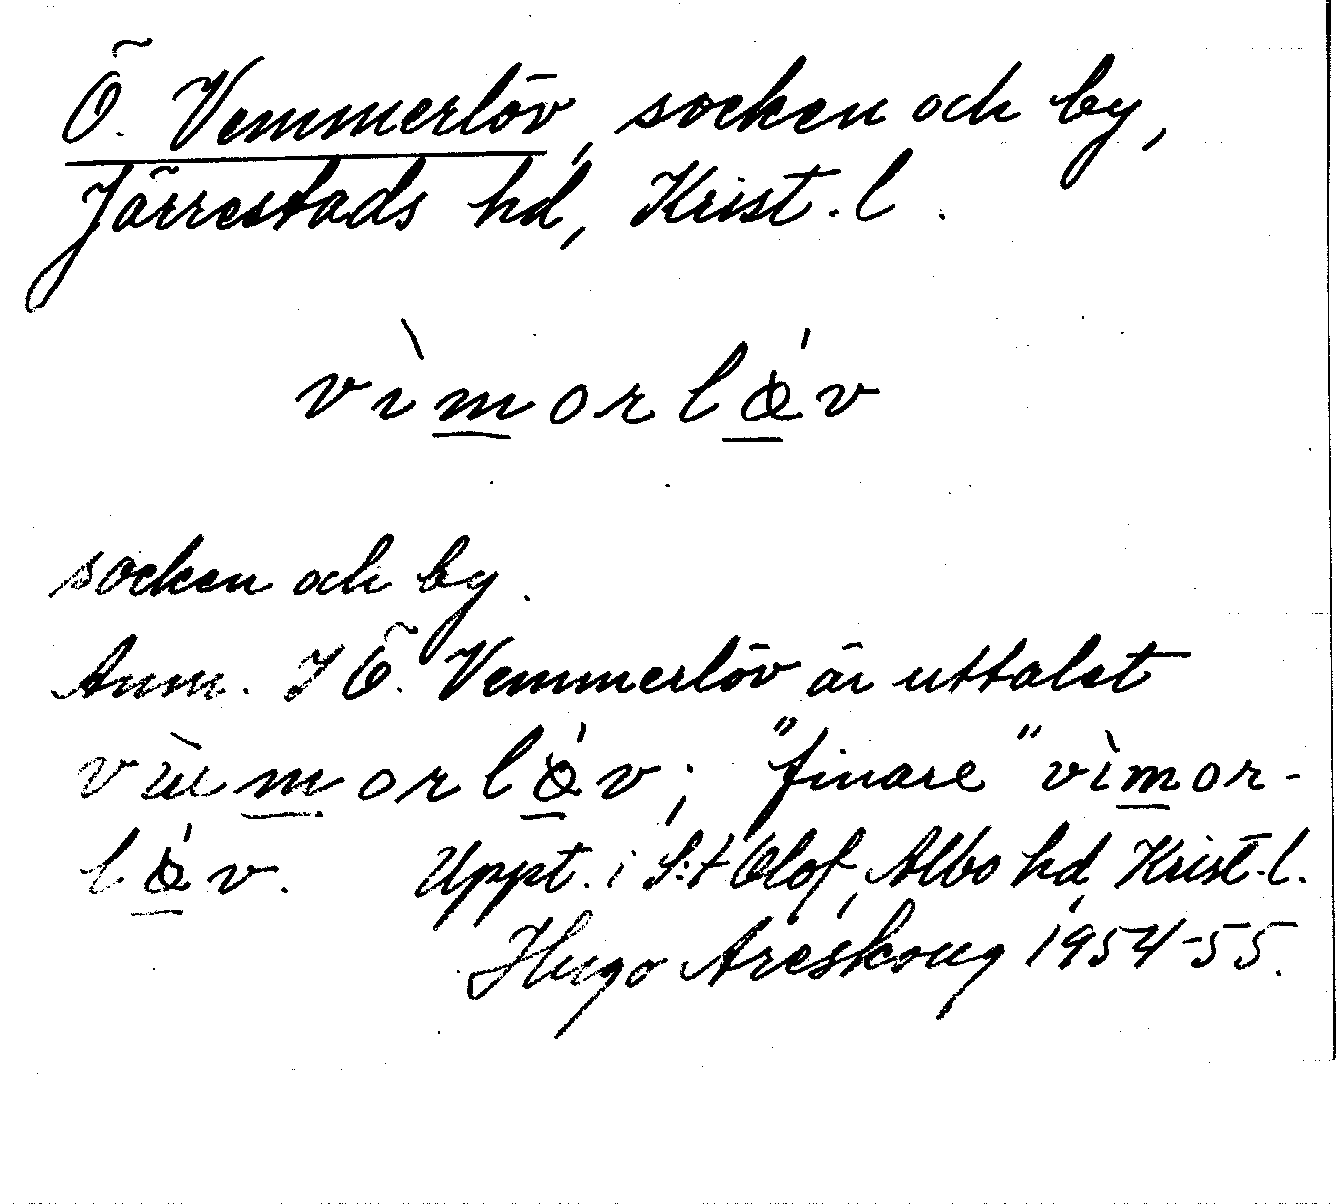 Ö. Vemmerlöv, socken och by,
Järrestads hd, Krist. l.
vìmorlǿv
socken och by.
Anm. I Ö. Vemmerlöv är uttalet
morlǿv; "finare" vìmor-
lǿv. Uppt. i S:t Olof, Albo hd, Krist. l.
Hugo Areskoug 1954-55.